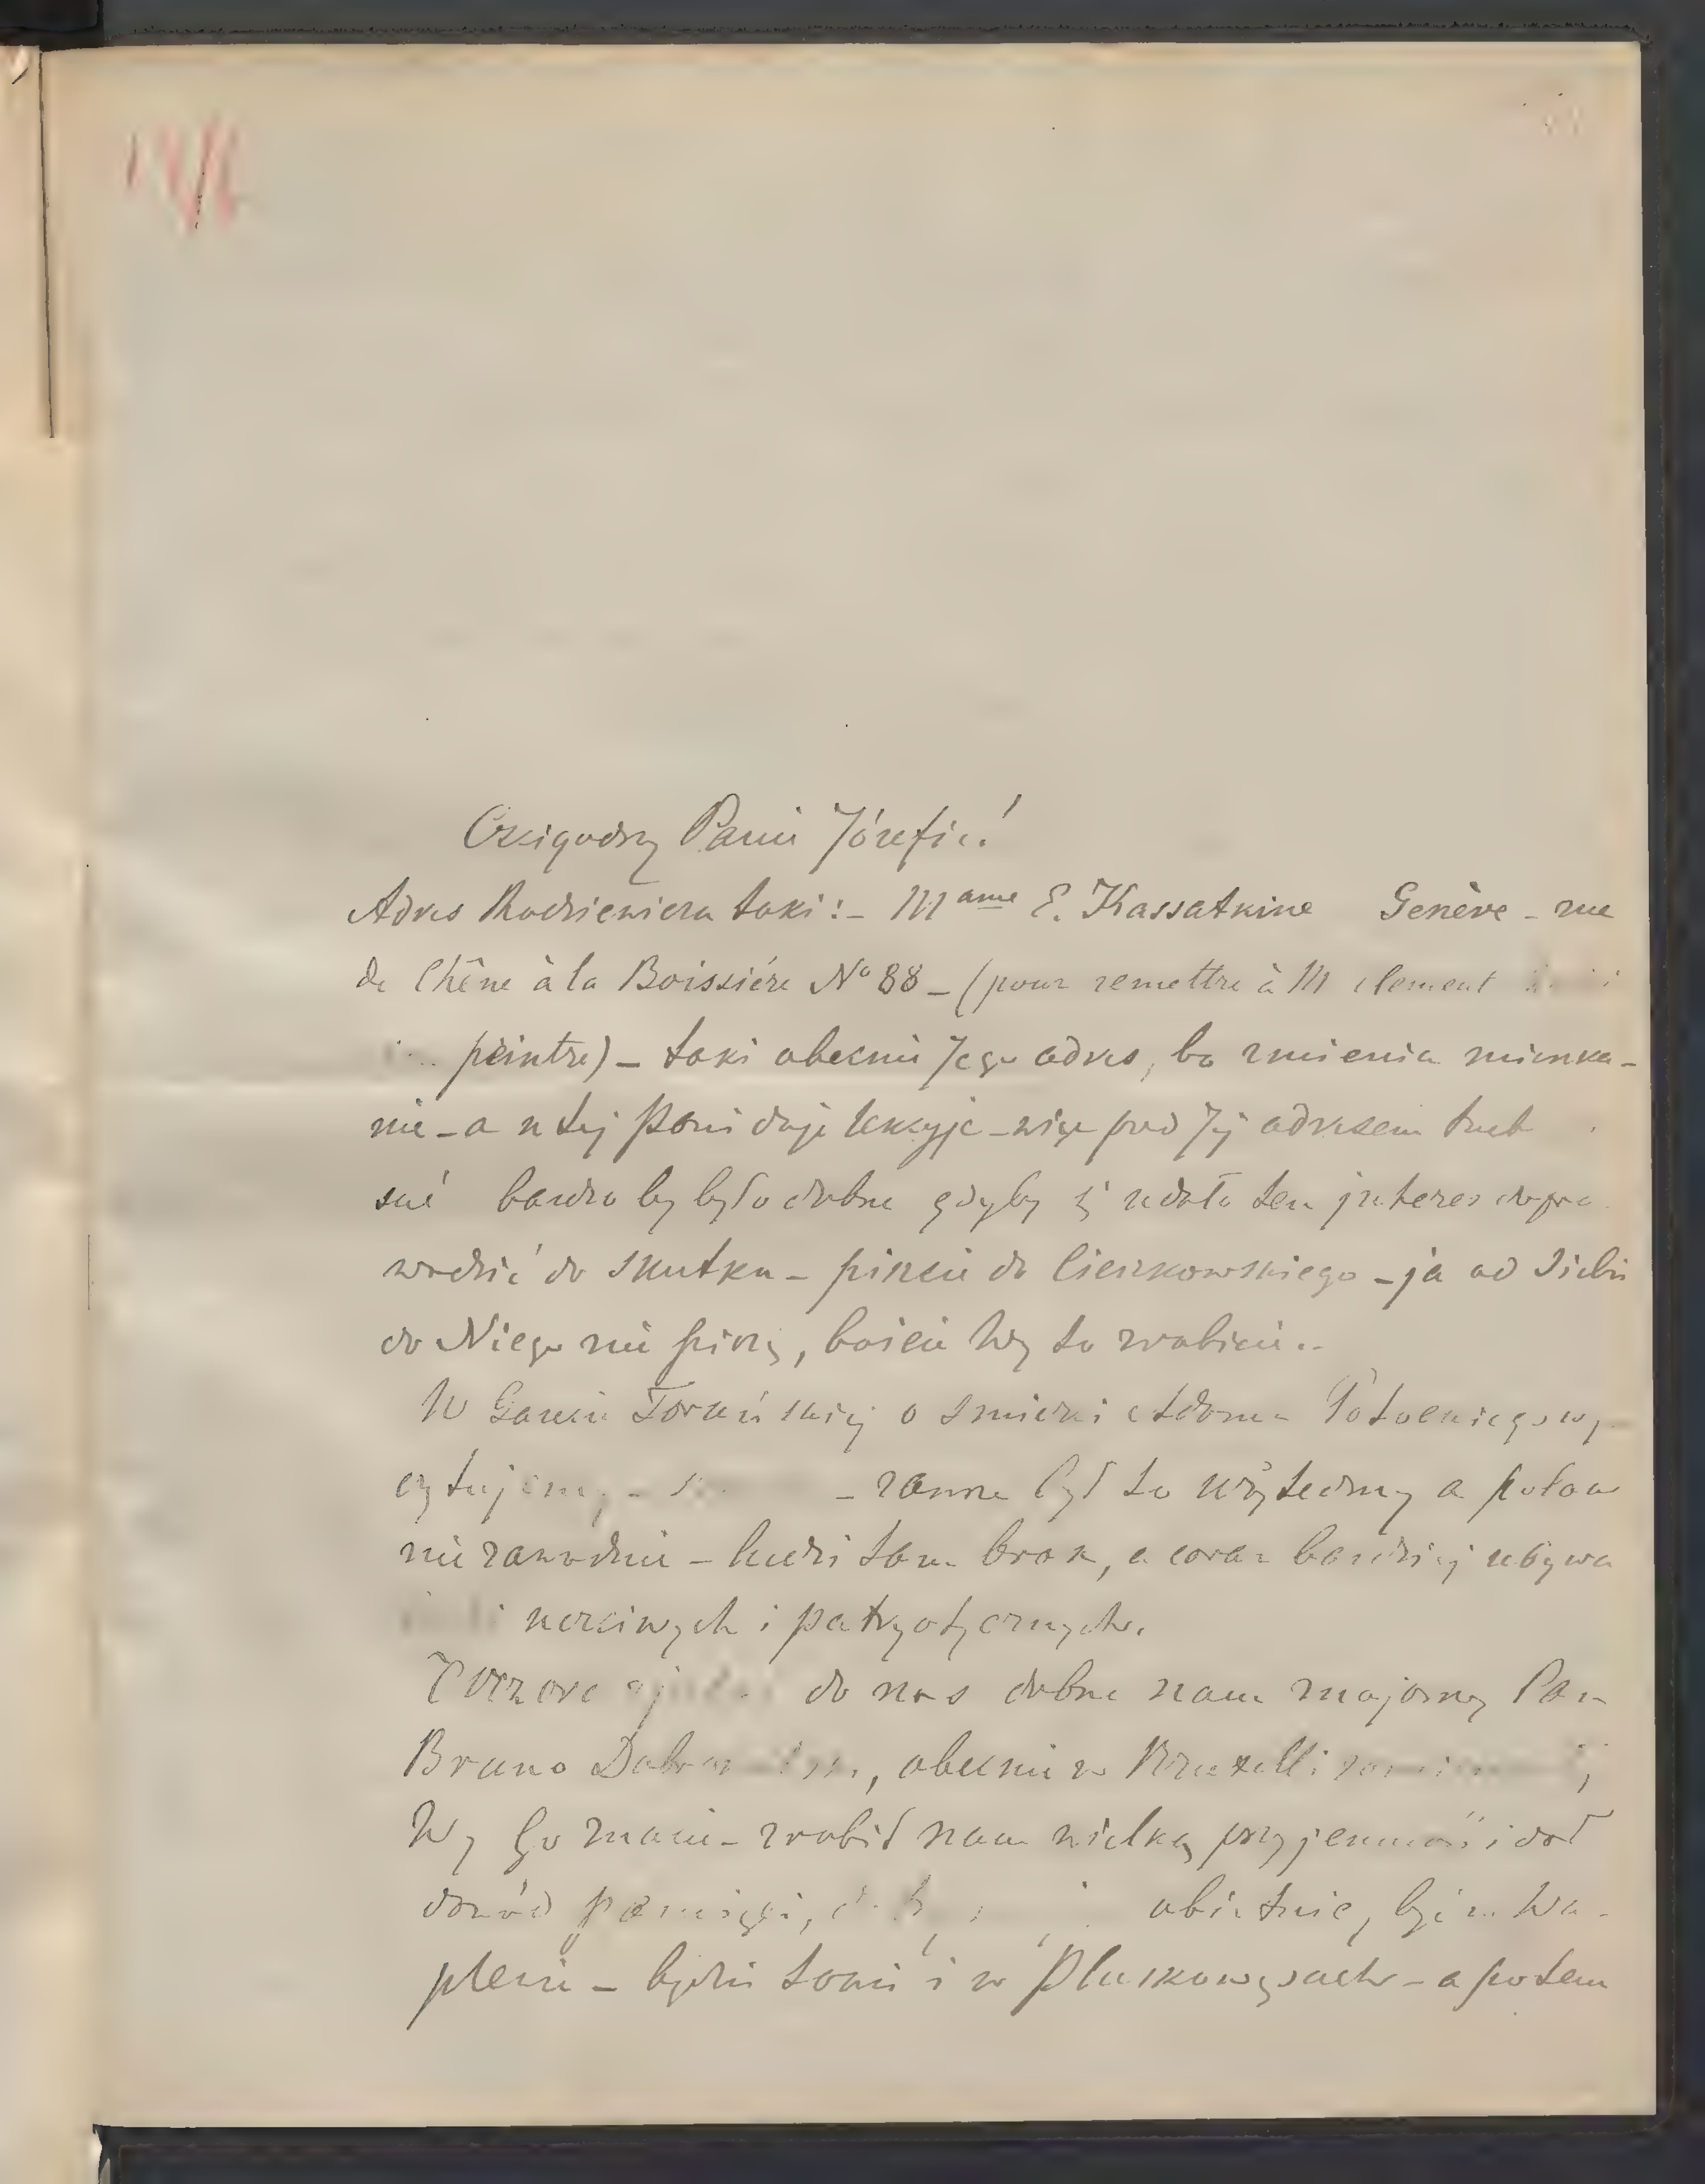 Czcigodny Panie Józefie!
Adres Rodziewicza taki: – Mame E. Kassatkine Genève – rue
de Chêne à la Boissière No 88 – (pour remettre à M clement
peintre) – taki obecnie Jego adres, bo zmienia mieszka-
nie – a u tej Pani daje lekcyje – więc pod Jej adresem
bardzo by było dobrze gdyby się udało ten interes dopro
wadzić do skutku – piszcie do Cieszkowskiego – ja od siebie
do Niego nie piszę, boście Wy to zrobicie..
W Gazecie Toruńskiej o śmierci Adama Potockiego wy
czytujemy – – zawsze był to użyteczny a
nie zawodnie – ludzi tam brak, a coraz bardziej ubywa
uczciwych i patryotycznych.
do nas dobrze nam znajomy Pan
Bruno , obecnie w Bruxelli
Wy Go znacie – zrobił nam wielką przyjemność i dał
dowód pamięci, obietnicę, być w Wa-
plewie – będzie tam i w Pluskowęsach – a potem